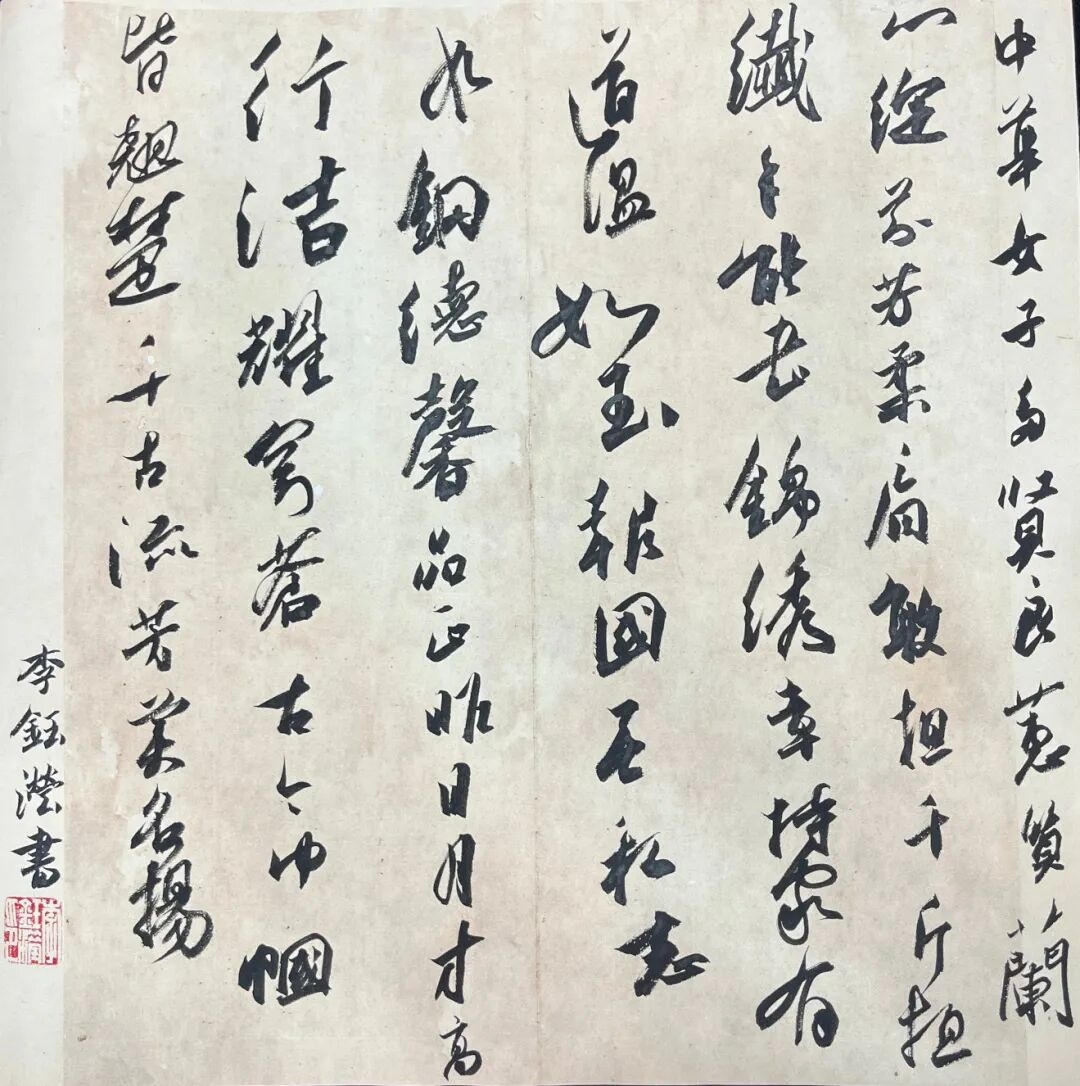 中華女子多賢良蕙質蘭
心淫芬芳柔肩敢担千斤担
纖手能書錦綉章持家有
道温如玉報國無私志
如鋼德馨品正昭日月才高
行洁耀穹蒼古今巾幗
皆翹楚千古流芳美名揚
李鈺瀅書